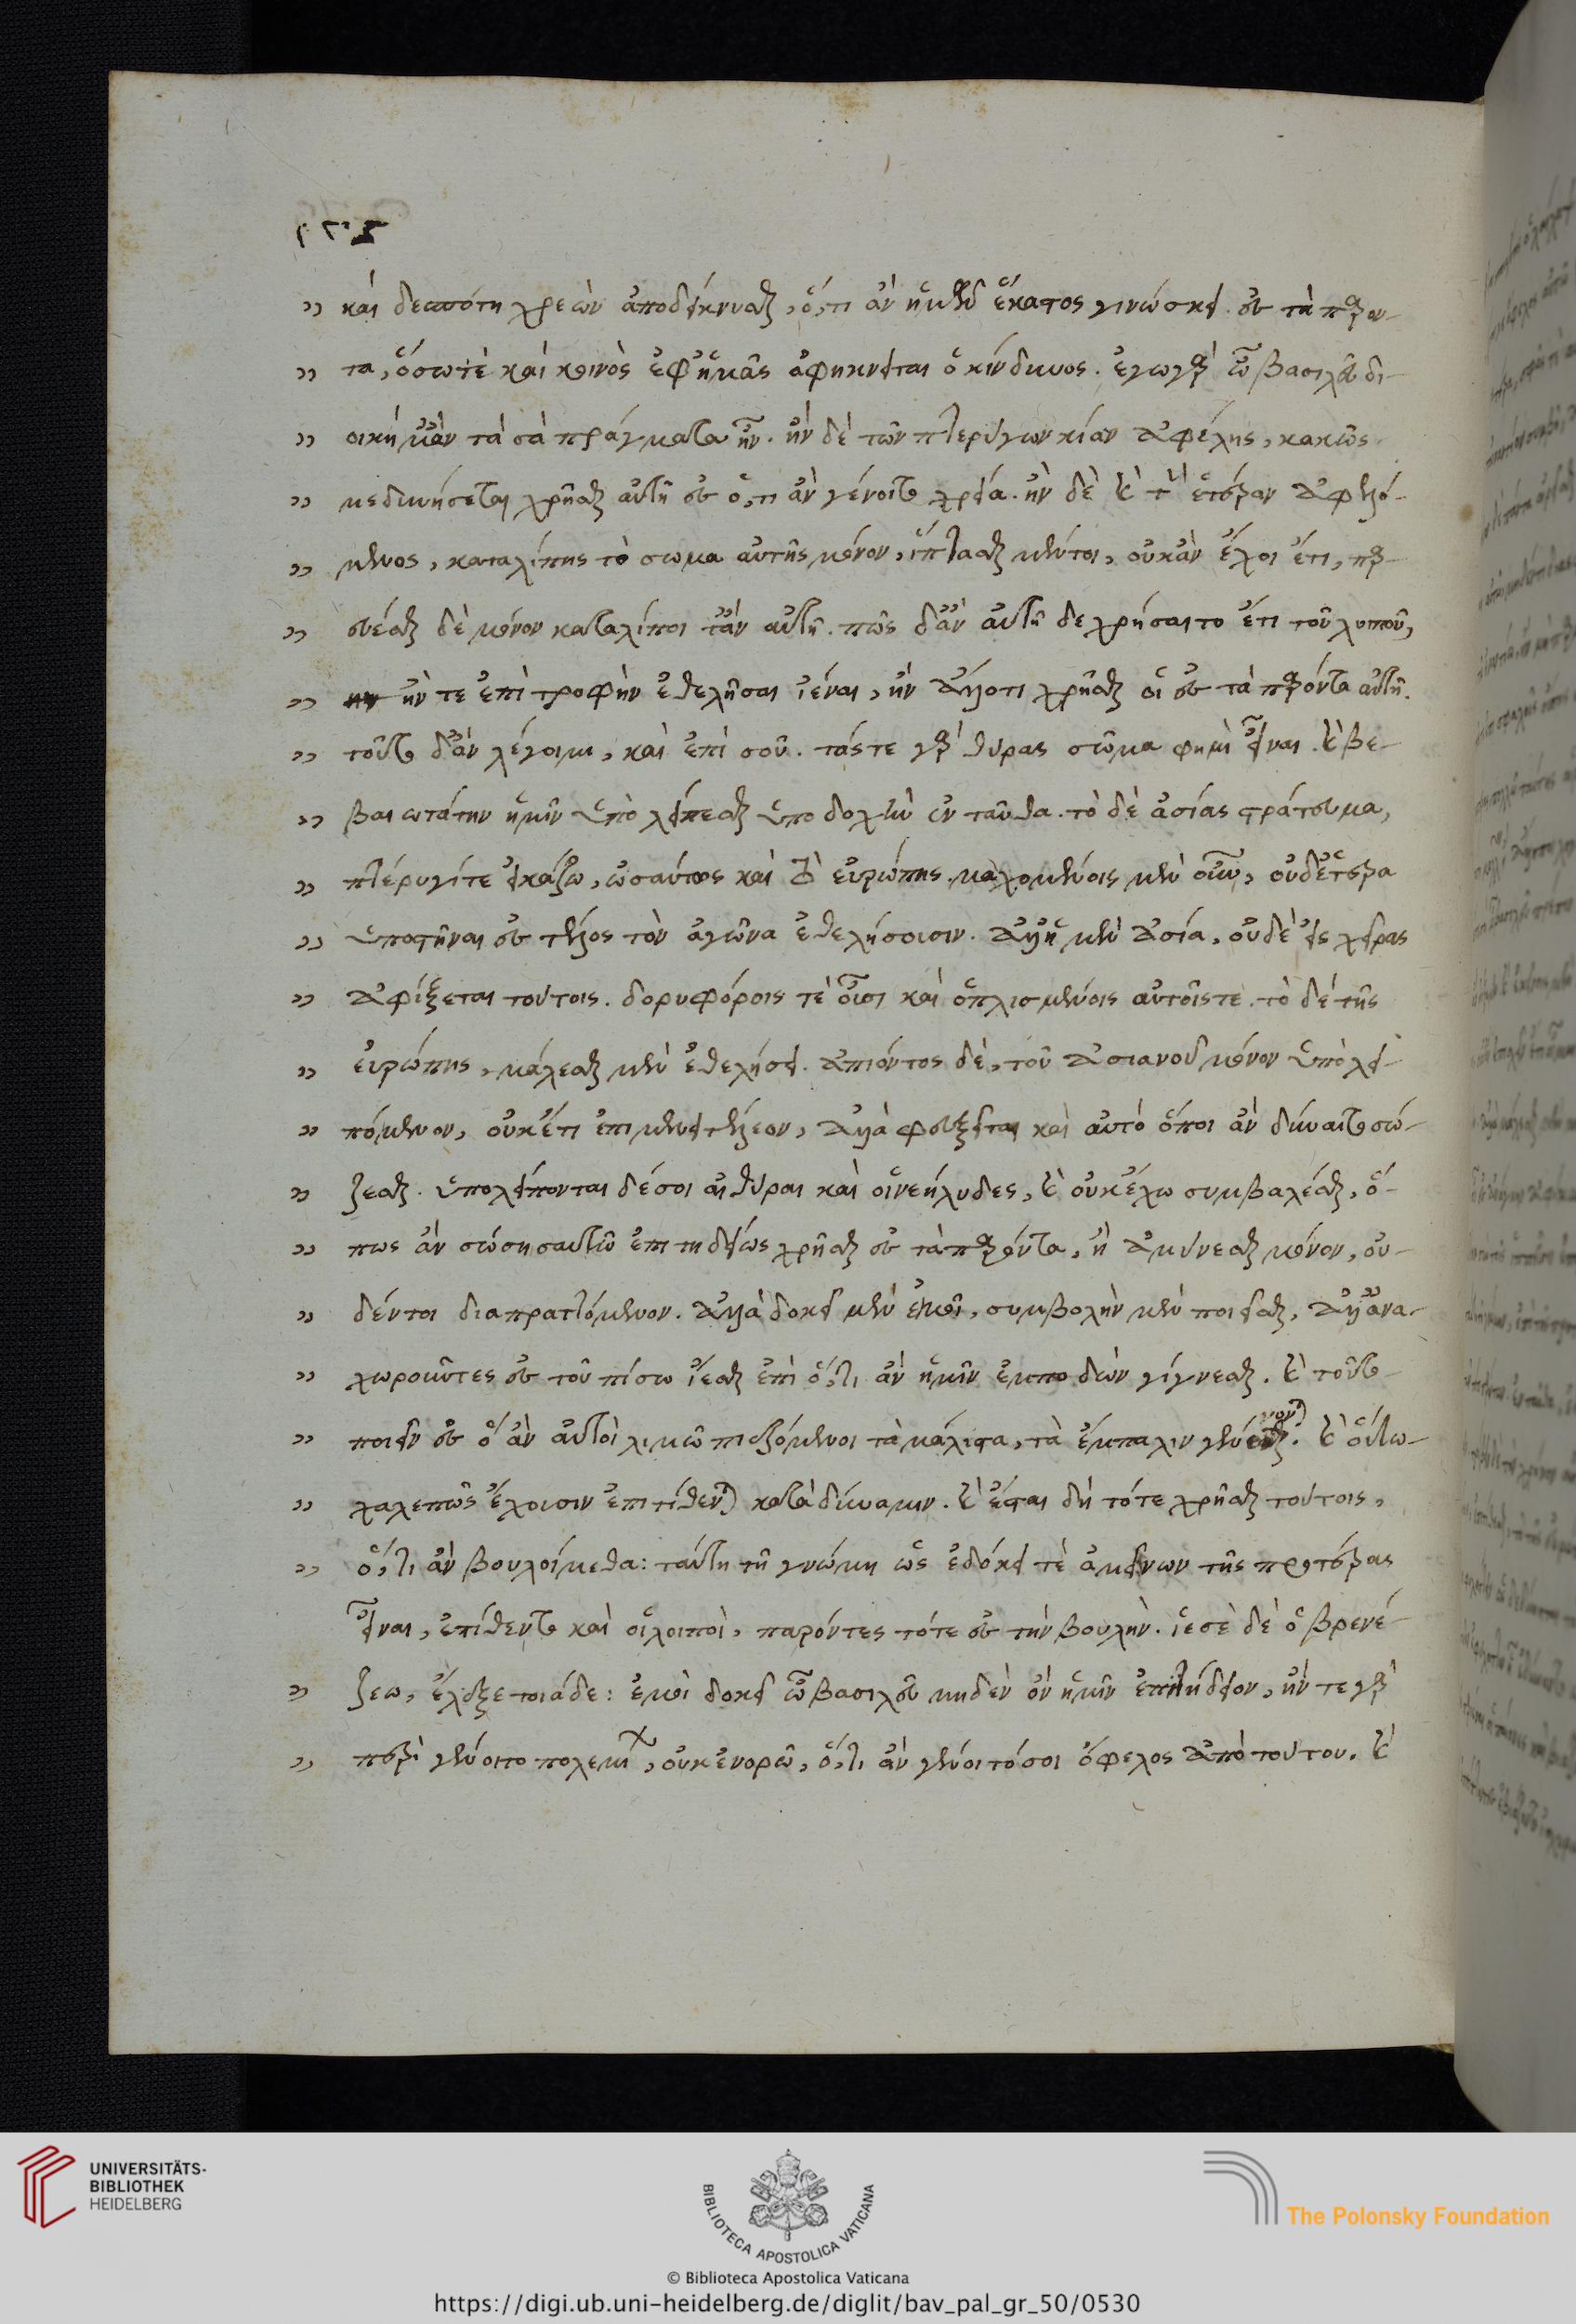 " καὶ δεσπότῃ χρεὼν ἀποδείκνυσθαι, ὅ,τι ἂν ἡμῶν ἕκαστος γινώσκει ἐς τὰ παρόν-
" τα, ὅσῳ τὲ καὶ κοινὸς ἐφ' ἡμᾶς ἀφηκνεῖται ὁ κίνδυνος. ἐγὼ γὰρ ὦ βασιλεῦ δι-
" τὰ σὰ πράγματα ἦν. ἢν δὲ τῶν πτερύγων μίαν ἀφέλης, κακῶς
" χρῆσθαι αὐτῇ ἐς ὅ,τι ἂν γένοιτο χρεία. ἢν δὲ καὶ τὴν ἑτέραν ἀφελό-
" μενος, καταλίπης τὸ σωμα αὐτῆς μόνον, ἵπτασθαι μέντοι, οὐκ ἂν ἔχοι ἔτι,
" δὲ μόνον καταλίποι τἂν αὐτῇ. πῶς δ' ἂν αὐτῇ δὲ χρήσαιτο ἔτι τοῦ λοιποῦ,
" ἤν τε ἐπὶ τροφὴν ἐθελῆσαι ἰέναι, ἢν ἄλλοτι χρῆσθαι οἷ ἐς τὰ παρόντα αὐτῇ.
" τοῦτο δ' ἂν λέγοιμι, καὶ ἐπὶ σοῦ. τάς τε γὰρ θύρας σῶμα φημὶ εἶναι. καὶ βε-
" βαιωτάτην ἡμῖν ὑπολείπεσθαι ὑποδοχὴν ἐνταῦθα. τὸ δὲ ἀσίας στράτευμα,
" πτέρυγί τε εἰκάζω, ὡσαύτως καὶ τὸ εὐρώπης. μαχομένοις μὲν οὖν, οὐδέτερα
" ὑποστῆναι ἐς τέλος τὸν ἀγῶνα ἐθελήσουσιν. ἀλλ' ἡ μὲν ἀσία, οὐδὲ εἰς χεῖρας
" ἀφίξεται τούτοις. δορυφόροις τὲ οὖσι καὶ ὁπλισμένοις αὐτοῖς τε. τὸ δὲ τῆς
" εὐρώπης, μάχεσθαι μὲν ἐθελήσει. ἀπιόντος δὲ, τοῦ ἀσιανοῦ μόνον ὑπολει-
" πόμενον, οὐκέτι ἐπιμενεῖ πλέον, ἀλλὰ φευξεῖται καὶ αὐτὸ ὅποι ἂν δύναιτο σώ-
" ζεσθαι. ὑπολείπονται δέ σοι αἱ θύραι καὶ οἱ νεήλυδες, καὶ οὐκ ἔχω συμβαλέσθαι, ὅ-
" πως ἂν σώση σαυτῶ ἐπιτηδείως χρῆσθαι ἐς τὰ παρόντα, ἢ ἀμύνεσθαι μόνον, οὐ-
" δέν τοι διαπραττόμενον. ἀλλὰ δοκεῖ μὲν ἐμοὶ, συμβολὴν μὲν ποιεῖσθαι, ἀλλ' ἀνα-
" χωροῦντες ἐς τοῦ πίσω ἵεσθαι ἐπὶ ὅ,τι ἂν ἡμῖν ἐμποδὼν γίγνεσθαι. καὶ τοῦτο
" ποιεῖν ἐς ὃ ἂν αὐτοὶ λιμῶ πιεζόμενοι τὰ μάλιστα, τὰ ἔμπαλιν. καὶ οὕτω
" χαλεπῶς ἔχουσιν ἐπιτίθενται κατὰ δύναμιν. καὶ ἔσται δὴ τότε χρῆσθαι τούτοις,
" ὅ,τι ἂν βουλοίμεθα: ταύτη τῇ γνώμη ὡς ἐδόκει τὲ ἀμείνων τῆς προτέρας
εἶναι, ἐπίθεντο καὶ οἱ λοιποὶ, παρόντες τότε ἐς τὴν βουλὴν. ἰεσὲ δὲ ὁ βρενέ-
" ζεω, ἔλεξε τοιάδε: ἐμοὶ δοκεῖ ὦ βασιλεῦ μηδὲν ὂν ἡμῖν ἐπιτήδειον, ἤν τε γὰρ
" περὶ γένοιτο πολεμί, οὐκ ἐνορῶ, ὅ,τι ἂν γένοιτό σοι ὄφελος ἀπὸ τούτου. καὶ
UNIVERSITÄTS-
BIBLIOTHEK
HEIDELBERG
BIBLIOTECA APOSTOLICA VATICANA
The Polonsky Foundation
© Biblioteca Apostolica Vaticana
https://digi.ub.uni-heidelberg.de/diglit/bav_pal_gr_50/0530